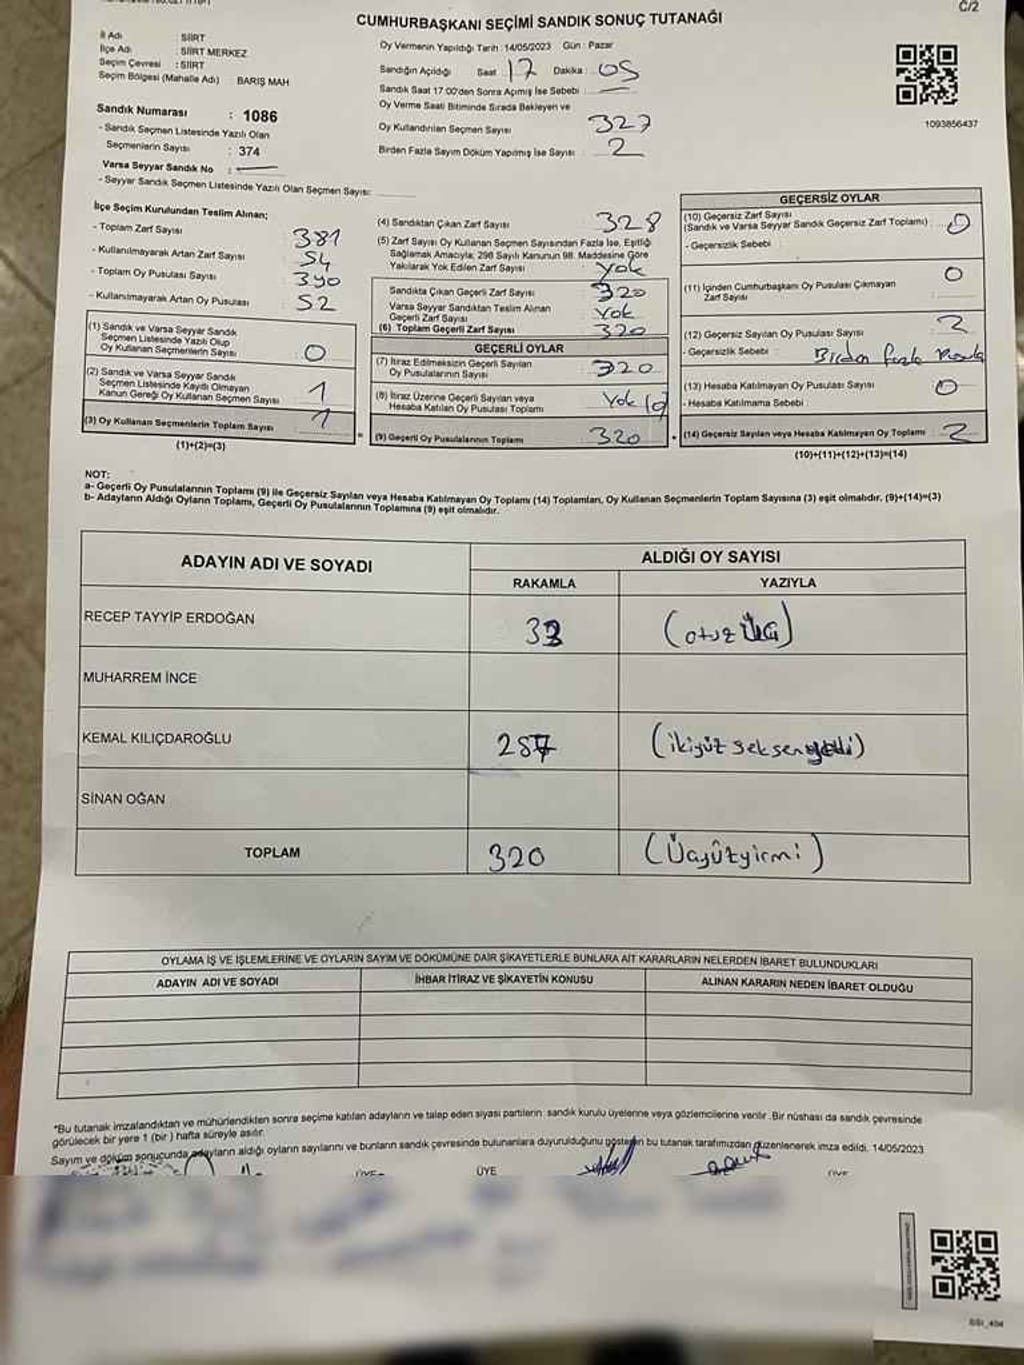 C/2
CUMHURBAŞKANI SEÇİMİ SANDIK SONUÇ TUTANAĞI
İl Adı : SİİRT
İlçe Adı : SİİRT MERKEZ
Seçim Çevresi : SİİRT
Seçim Bölgesi (Mahalle Adı) BARIŞ MAH
Sandık Numarası : 1086
- Sandık Seçmen Listesinde Yazılı Olan
Seçmenlerin Sayısı : 374
Varsa Seyyar Sandık No :
- Seyyar Sandık Seçmen Listesinde Yazılı Olan Seçmen Sayısı:
Oy Vermenin Yapıldığı Tarih : 14/05/2023 Gün : Pazar
Sandığın Açıldığı Saat 17 Dakika : 05
Sandık Saat 17:00'den Sonra Açımış İse Sebebi :
Oy Verme Saati Bitiminde Sırada Bekleyen ve
Oy Kullandırılan Seçmen Sayısı 327
Birden Fazla Sayım Döküm Yapılmış İse Sayısı : 2
1093856437
İlçe Seçim Kurulundan Teslim Alınan;
- Toplam Zarf Sayısı 381
- Kullanılmayarak Artan Zarf Sayısı 54
- Toplam Oy Pusulası Sayısı 390
- Kullanılmayarak Artan Oy Pusulası 52
(1) Sandık ve Varsa Seyyar Sandık
Seçmen Listesinde Yazılı Olup
Oy Kullanan Seçmenlerin Sayısı 0
(2) Sandık ve Varsa Seyyar Sandık
Seçmen Listesinde Kaydı Olmayan
Kanun Gereği Oy Kullanan Seçmen Sayısı 1
(3) Oy Kullanan Seçmenlerin Toplam Sayısı 1
(1)+(2)=(3)
(4) Sandıktan Çıkan Zarf Sayısı 328
(5) Zarf Sayısı Oy Kullanan Seçmen Sayısından Fazla İse, Eşitliği
Sağlamak Amacıyla; 298 Sayılı Kanunun 98. Maddesine Göre
Yakılarak Yok Edilen Zarf Sayısı Yok
Sandıkta Çıkan Geçerli Zarf Sayısı 320
Varsa Seyyar Sandıktan Teslim Alınan
Geçerli Zarf Sayısı Yok
(6) Toplam Geçerli Zarf Sayısı 320
GEÇERLİ OYLAR
(7) İtiraz Edilmeksizin Geçerli Sayılan
Oy Pusulalarının Sayısı 320
(8) İtiraz Üzerine Geçerli Sayılan veya
Hesaba Katılan Oy Pusulası Toplamı Yok
= (9) Geçerli Oy Pusulalarının Toplamı 320
GEÇERSİZ OYLAR
(10) Geçersiz Zarf Sayısı
(Sandık ve Varsa Seyyar Sandık Geçersiz Zarf Toplamı) : 0
- Geçersizlik Sebebi
(11) İçinden Cumhurbaşkanı Oy Pusulası Çıkmayan
Zarf Sayısı 0
(12) Geçersiz Sayılan Oy Pusulası Sayısı 2
- Geçersizlik Sebebi : Birden fazla
(13) Hesaba Katılmayan Oy Pusulası Sayısı 0
- Hesaba Katılmama Sebebi :
+ (14) Geçersiz Sayılan veya Hesaba Katılmayan Oy Toplamı 2
(10)+(11)+(12)+(13)=(14)
NOT:
a- Geçerli Oy Pusulalarının Toplamı (9) ile Geçersiz Sayılan veya Hesaba Katılmayan Oy Toplamı (14) Toplamları, Oy Kullanan Seçmenlerin Toplam Sayısına (3) eşit olmalıdır. (9)+(14)=(3)
b- Adayların Aldığı Oyların Toplamı, Geçerli Oy Pusulalarının Toplamına (9) eşit olmalıdır.
ADAYIN ADI VE SOYADI ALDIĞI OY SAYISI
RAKAMLA YAZIYLA
RECEP TAYYİP ERDOĞAN 33 (otuz üç)
MUHARREM İNCE
KEMAL KILIÇDAROĞLU 287 (ikiyüz seksen yedi)
SİNAN OĞAN
TOPLAM 320 (Üçyüzyirmi)
OYLAMA İŞ VE İŞLEMLERİNE VE OYLARIN SAYIM VE DÖKÜMÜNE DAİR ŞİKAYETLERLE BUNLARA AİT KARARLARIN NELERDEN İBARET BULUNDUKLARI
ADAYIN ADI VE SOYADI İHBAR İTİRAZ VE ŞİKAYETİN KONUSU ALINAN KARARIN NEDEN İBARET OLDUĞU
*Bu tutanak imzalandıktan ve mühürlendikten sonra seçime katılan adayların ve talep eden siyasi partilerin sandık kurulu üyelerine veya gözlemcilerine verilir. Bir nüshası da sandık çevresinde
görülecek bir yere 1 (bir) hafta süreyle asılır.
Sayım ve döküm sonucunda adayların aldığı oyların sayılarını ve bunların sandık çevresinde bulunanlara duyurulduğunu gösteren bu tutanak tarafımızdan düzenlenerek imza edildi. 14/05/2023
ÜYE ÜYE ÜYE